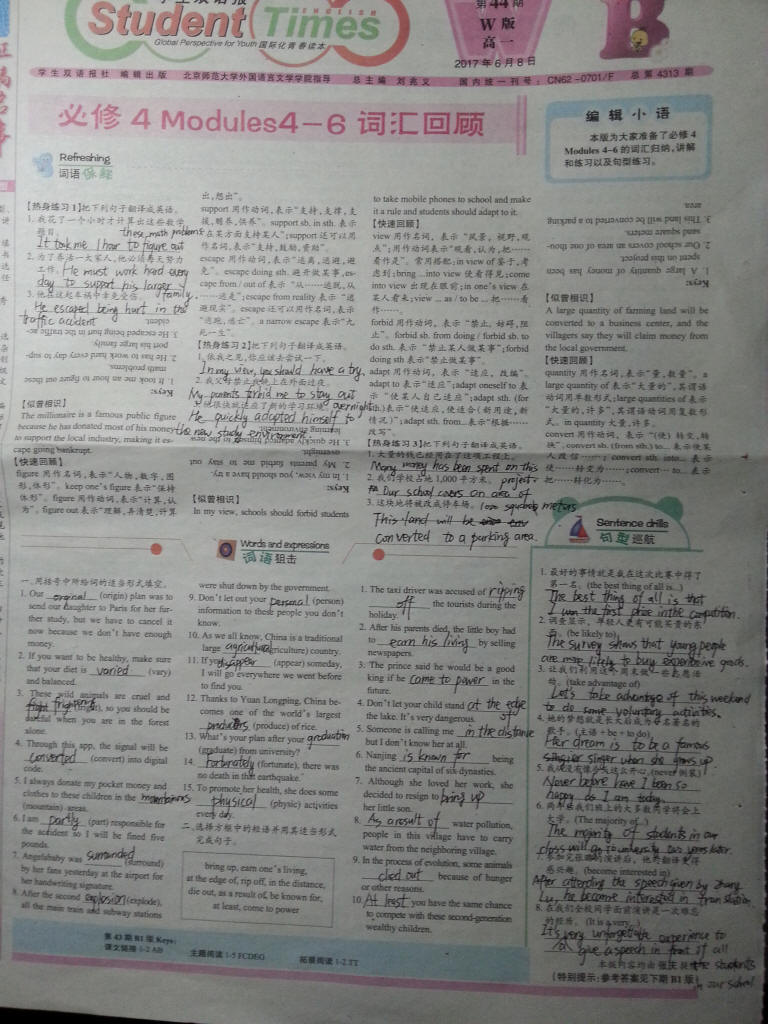 学生双语报
Student Times
ENGLISH
Global Perspective for Youth 国际化青春读本
第44期
W版
高一
2017年6月8日
B
学生双语报社 编辑出版 北京师范大学外国语言文学学院指导 总主编 刘兆义 国内统一刊号：CN62-0701/F 总第4313期
必修 4 Modules4-6 词汇回顾
编辑小语
本版为大家准备了必修4
Modules 4-6 的词汇归纳,讲解
和练习以及句型练习。
Refreshing
词语
【热身练习1】把下列句子翻译成英语。
1. 我花了一个小时才计算出这些数学
题目。
these math problems
It took me 1 hour to figure out
2. 为了养活一大家人,他必须每天努力
工作。 He must work hard every
day to support his larger family.
3. 他在这起车祸中幸免受伤。
He escaped being hurt in the
traffic accident
Keys:
1. It took me an hour to figure out these
math problems.
2. He has to work hard every day to sup-
port his large family.
3. He escaped being hurt in the traffic ac-
cident.
【似曾相识】
The millionaire is a famous public figure
because he has donated most of his money
to support the local industry, making it es-
cape going bankrupt.
【快速回顾】
figure 用作名词,表示“人物,数字,图
形,体形”。keep one's figure 表示“保持
体形”。figure 用作动词,表示“计算,认
为”。figure out 表示“理解,弄清楚,计算
出,想出”。
support 用作动词,表示“支持,支撑,支
援,赡养,供养”。support sb. in sth. 表示
“在某方面支持某人”;support 还可以用
作名词,表示“支持,鼓励,资助”。
escape 用作动词,表示“逃离,逃避,避
免”。escape doing sth. 避开做某事,es-
cape from / out of 表示“从……逃脱,从
……逃走”;escape from reality 表示“逃
避现实”。escape 还可以用作名词,表示
“逃跑,逃亡”。a narrow escape 表示“九
死一生”。
【热身练习2】把下列句子翻译成英语。
1. 依我之见,你应该去尝试一下。
In my view, you should have a try.
2. 我父母禁止我晚上在外面过夜。
My parents forbid me to stay out
overnight
3. 他很快就适应了新的学习环境。
He quickly adapted himself to
the new study environment.
Keys:
1. In my view, you should have a try.
2. My parents forbid me to stay out
overnight.
3. He quickly adapted himself to the new
learning environment.
【似曾相识】
In my view, schools should forbid students
to take mobile phones to school and make
it a rule and students should adapt to it.
【快速回顾】
view 用作名词,表示“风景,视野,观
点”;用作动词表示“观看,认为,把……
看作是”。常用搭配:in view of 鉴于,考
虑到;bring ...into view 使看得见;come
into view 出现在眼前;in one's view 在
某人看来;view ... as / to be ... 把……看
作……。
forbid 用作动词,表示“禁止,妨碍,阻
止”。forbid sb. from doing / forbid sb. to
do sth. 表示“禁止某人做某事”;forbid
doing sth 表示“禁止做某事”。
adapt 用作动词,表示“适应,改编”。
adapt to 表示“适应”;adapt oneself to 表
示“使某人自己适应”;adapt sth. (for
sth.)表示“使适应,使适合(新用途,新
情况)”;adapt sth. from...表示“根据……
改写”。
【热身练习3】把下列句子翻译成英语。
1. 大量的钱已经用在了这项工程上。
Many money has been spent on this
project
2. 我们学校占地 1,000 平方米。
Our school covers an area of
1000 square meters
3. 这块地将被改成停车场。
This land will be
converted to a parking area.
Keys:
1. A large quantity of money has been
spent on this project.
2. Our school covers an area of one thou-
sand square meters.
3. This land will be converted to a parking
area
【似曾相识】
A large quantity of farming land will be
converted to a business center, and the
villagers say they will claim money from
the local government.
【快速回顾】
quantity 用作名词,表示“量,数量”。a
large quantity of 表示“大量的”,其谓语
动词用单数形式;large quantities of 表示
“大量的,许多”,其谓语动词用复数形
式。in quantity 大量,许多。
convert 用作动词,表示“(使)转变,转
换”。convert sb. (from sth.) to... 表示使某
人改信……; convert sth. into... 表示
使……转变为……;convert… to... 表示
把……转化为……。
Words and expressions
词语狙击
一、用括号中所给词的适当形式填空。
1. Our original (origin) plan was to
send our daughter to Paris for her fur-
ther study, but we have to cancel it
now because we don't have enough
money.
2. If you want to be healthy, make sure
that your diet is varied (vary)
and balanced.
3. These wild animals are cruel and
(fright), so you should be
careful when you are in the forest
alone.
4. Through this app, the signal will be
converted (convert) into digital
code.
5. I always donate my pocket money and
clothes to these children in the mountainous
(mountain) areas.
6. I am partly (part) responsible for
the accident so I will be fined five
pounds.
7. Angelababy was surrounded (surround)
by her fans yesterday at the airport for
her handwriting signature.
8. After the second explosion (explode),
all the main train and subway stations
were shut down by the government.
9. Don't let out your personal (person)
information to these people you don't
know.
10. As we all know, China is a traditional
large agricultural (agriculture) country.
11. If you disappear (appear) someday,
I will go everywhere we went before
to find you.
12. Thanks to Yuan Longping, China be-
comes one of the world's largest
producers (produce) of rice.
13. What's your plan after your graduation
(graduate) from university?
14. Fortunately (fortunate), there was
no death in the earthquake.
15. To promote her health, she does some
physical (physic) activities
every day.
二、选择方框中的短语并用其适当形式
完成句子。
bring up, earn one's living,
at the edge of, rip off, in the distance,
die out, as a result of, be known for,
at least, come to power
1. The taxi driver was accused of ripping
off the tourists during the
holiday.
2. After his parents died, the little boy had
to earn his living by selling
newspapers.
3. The prince said he would be a good
king if he come to power in the
future.
4. Don't let your child stand at the edge of
the lake. It's very dangerous.
5. Someone is calling me in the distance
but I don't know her at all.
6. Nanjing is known for being
the ancient capital of six dynasties.
7. Although she loved her work, she
decided to resign to bring up
her little son.
8. As a result of water pollution,
people in this village have to carry
water from the neighboring village.
9. In the process of evolution, some animals
died out because of hunger
or other reasons.
10. At least you have the same chance
to compete with these second-generation
wealthy children.
Sentence drills
句型巡航
1. 最好的事情就是我在这次比赛中得了
第一名。(the best thing of all is...)
The best thing of all is that
I won the first prize in the competition.
2. 调查显示,年轻人更有可能买贵的东
西。(be likely to)
The survey shows that young people
are more likely to buy expensive goods.
3. 让我们利用这个周末做一些志愿活
动。(take advantage of)
Let's take advantage of this weekend
to do some voluntary activities.
4. 她的梦想就是长大后成为一名著名的
歌手。(主语 + be + to do)
Her dream is to be a famous
singer when she grows up
5. 我从没有像今天这么开心。(never 倒装)
Never before have I been so
happy as I am today.
6. 两年后我们班上的大多数同学将会上
大学。(The majority of...)
The majority of students in our
class will go to university two years later.
7. 参加完张璐的演讲后,他对翻译变得
感兴趣。(become interested in)
After attending the speech given by Zhang
Lu, he became interested in translation.
8. 在我们全校同学面前演讲是一次难忘
的经历。(It is a very...)
It's very unforgettable experience to
give a speech in front of all
the students
in our school
本版内容均由 张庆
(特别提示:参考答案见下期 B1 版)
第 43 期 B1 版 Keys:
课文链接 1-2 AB 主题阅读 1-5 FCDEG 拓展阅读 1-2 TT